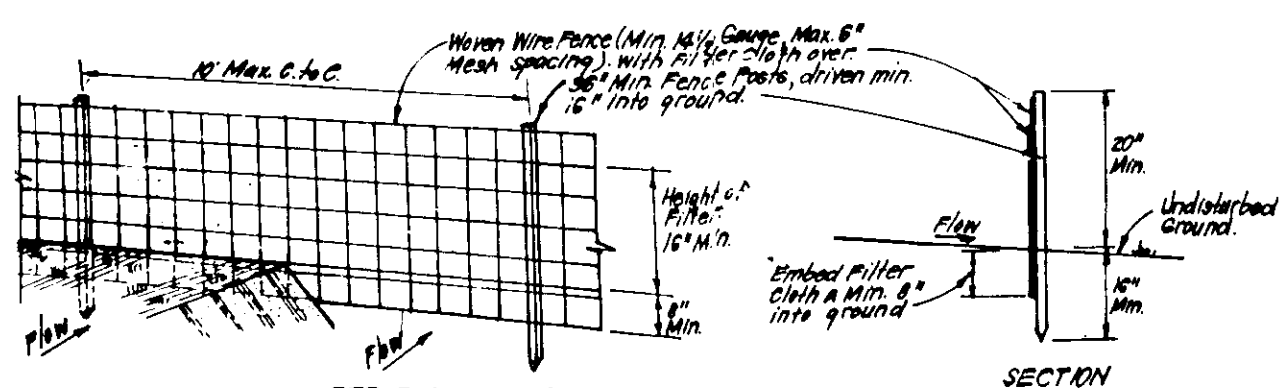 Woven Wire Fence (Min. 14½ Gauge, Max. 6"
Mesh spacing) with Filter Cloth over.
10' Max. C. to C.
36" Min. Fence Posts, driven min.
16" into ground.
Height of
Filter
16" Min.
8"
Min.
Flow
Flow
20"
Min.
Undisturbed
Ground.
Flow
Embed Filter
Cloth a Min. 8"
into ground
16"
Min.
SECTION